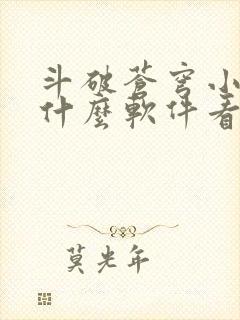 斗破蒼穹小
什麼軟件看
莫光年